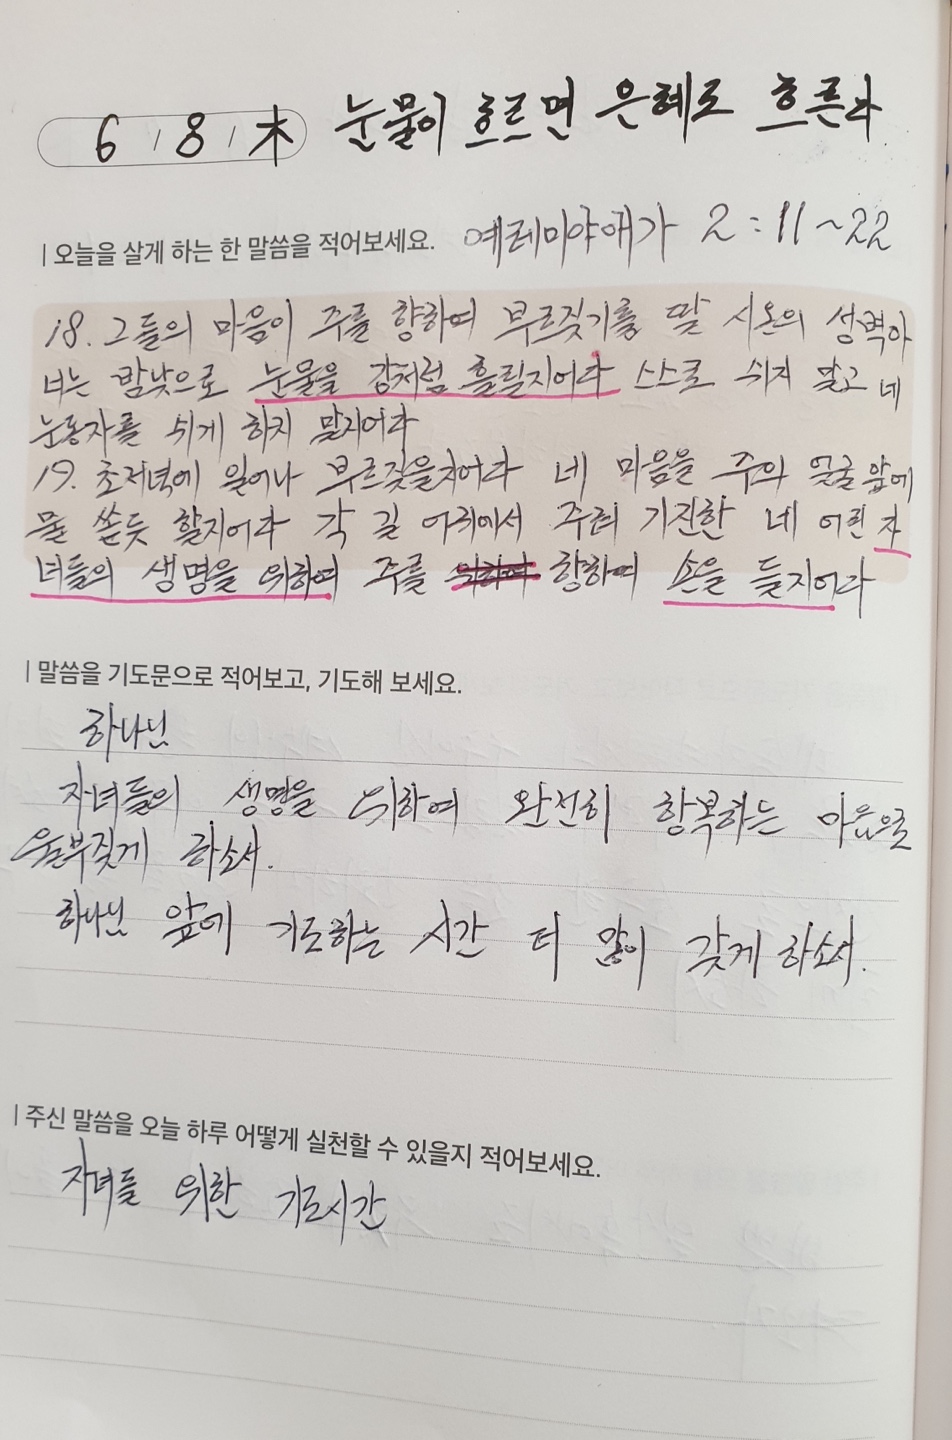 6 / 8 / 木 눈물이 흐르면 은혜로 흐른다
| 오늘을 살게 하는 한 말씀을 적어보세요. 예레미야애가 2:11~22
18. 그들의 마음이 주를 향하여 부르짖기를 딸 시온의 성벽아
너는 밤낮으로 눈물을 강처럼 흘릴지어다 스스로 쉬지 말고 네
눈동자를 쉬게 하지 말지어다
19. 초저녁에 일어나 부르짖을지어다 네 마음을 주의 얼굴 앞에
물 쏟듯 할지어다 각 길 어귀에서 주려 기진한 네 어린 자
녀들의 생명을 위하여 주를 향하여 손을 들지어다
| 말씀을 기도문으로 적어보고, 기도해 보세요.
하나님
자녀들의 생명을 위하여 완전히 항복하는 마음으로
울부짖게 하소서.
하나님 앞에 기도하는 시간 더 많이 갖게 하소서.
| 주신 말씀을 오늘 하루 어떻게 실천할 수 있을지 적어보세요.
자녀들 위한 기도시간